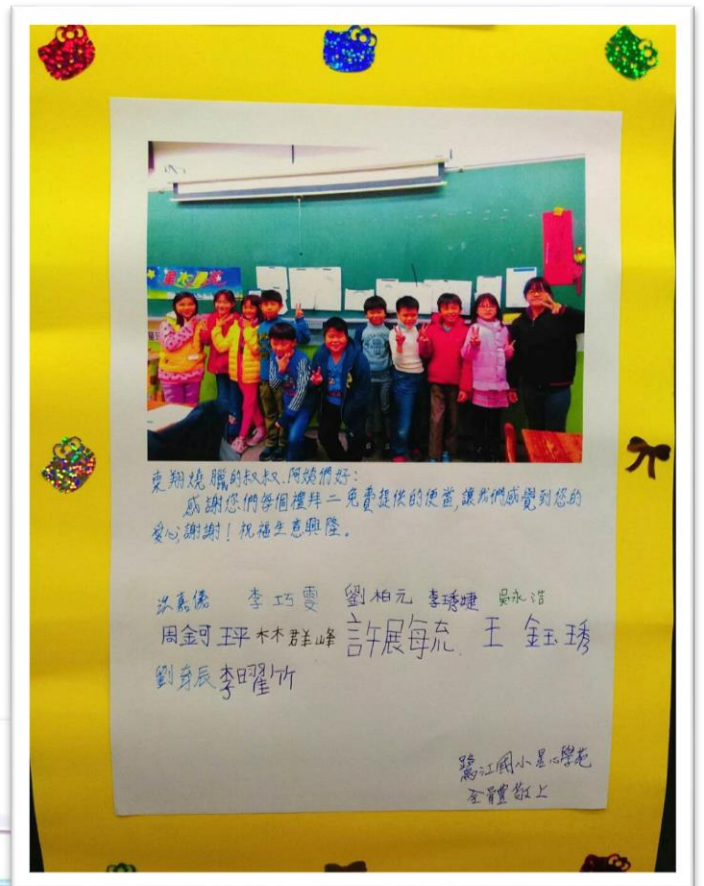 東翔燒臘的叔叔、阿姨們好:
感謝您們每個禮拜二免費提供的便當,讓我們感覺到您的
愛心,謝謝!祝福生意興隆。
李巧雯 劉柏元 李琇婕 吳永浩
林群峰 王鈺琇
鷺江國小星心學苑
全體敬上